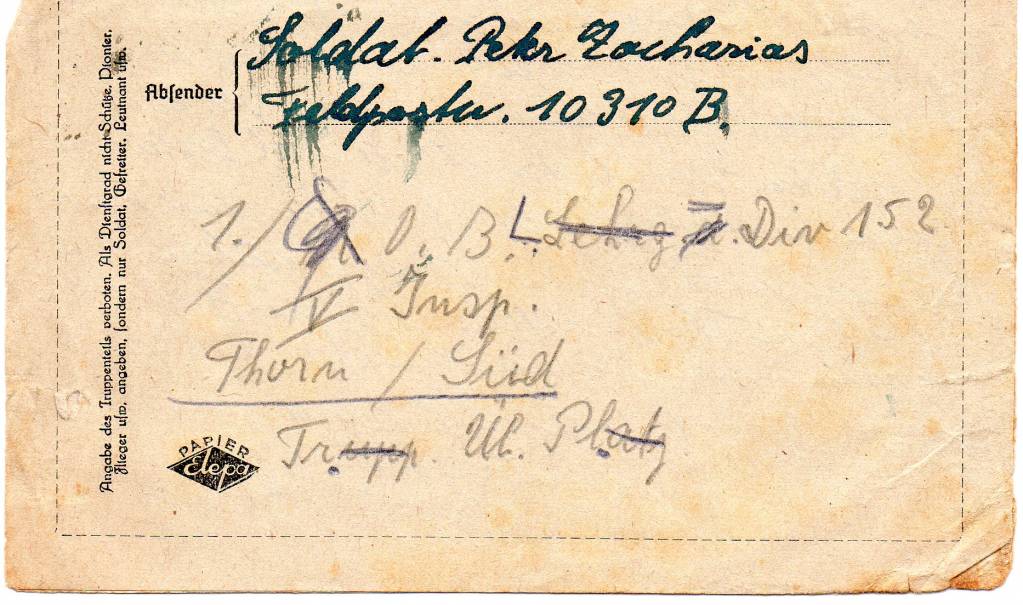 Soldat. Peter Zacharias
Absender
Feldpostnr. 10310 B.
1./ R. O. B. Lehrg. d. Div 152
IV Insp.
Thorn / Süd
Trupp. Üb. Platz
PAPIER
Elepa
Angabe des Truppenteils verboten. Als Dienstgrad nicht Schütze, Pionier,
Flieger usw. angeben, sondern nur Soldat, Gefreiter, Leutnant usw.